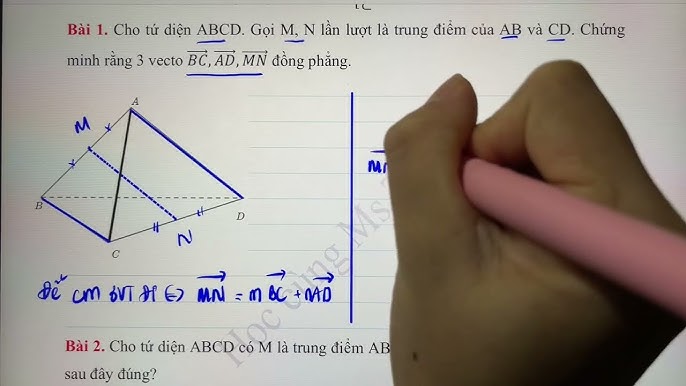 Bài 1. Cho tứ diện ABCD. Gọi M, N lần lượt là trung điểm của AB và CD. Chứng
minh rằng 3 vecto BC, AD, MN đồng phẳng.
A
M
B
D
N
C
MN
Để CM 3VT ĐP <=> MN = m BC + nAD
Học cùng Ms.
Bài 2. Cho tứ diện ABCD có M là trung điểm AB
sau đây đúng?